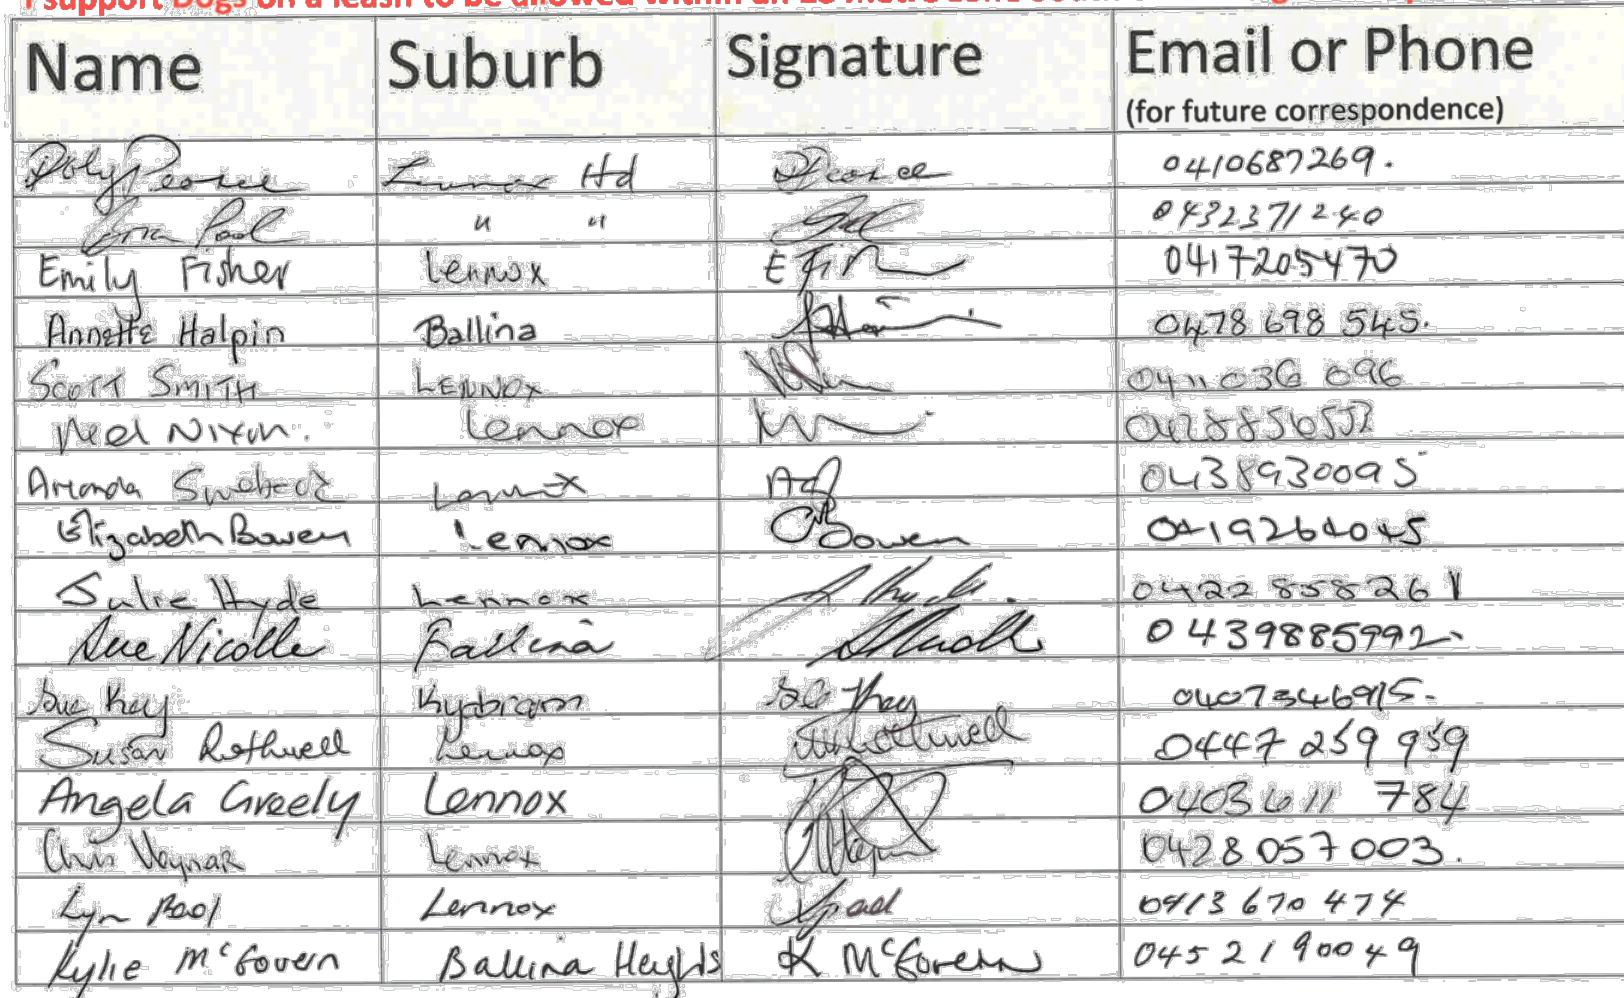 I support Dogs on a leash to be allowed within an
Name Suburb Signature Email or Phone
(for future correspondence)
Pearce Lennox Hd Pearce 0410687269.
Pool " " 0432371240
Emily Fisher Lennox E Fi 0417205470
Annette Halpin Ballina 0478 698 545.
SCOTT SMITH LENNOX 0411036 096
Mel NIXON. Lennox
Amanda Lennox 0438930095
Elizabeth Bowen Lennox Bowen
Julie Hyde Lennox 0422 858261
Sue Nicolle Ballina 0439885992
Sue Key Kyabram 0407346915.
Susan Rothwell Lennox Rothwell 0447 259 959
Angela Greely Lennox 0403 611 784
Chris Lennox 0428 057 003.
Lyn Pool Lennox 0413 670 474
Kylie McGovern Ballina Heights K McGovern 0452190049